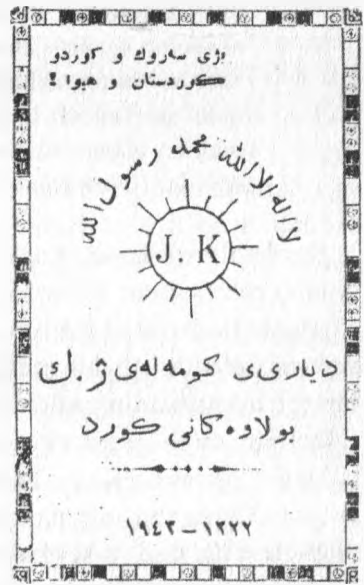 بژی سەروك و کوردو
کوردستان و هیوا
لااله الاالله محمد رسول الله
J. K
دیاری ی کۆمەلەی ژ . ك
بو لاوەکانی کورد
١٣٢٢ – ١٩٤٣